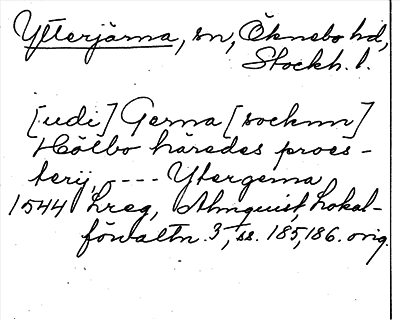 Ytterjärna, sn, Öknebo hd,
Stockh. l.
[udi] Gerna [socknn]
Hölbo häredes proes-
terij, ---- Ytergerna
1544 Lreg, Almquist, Lokal-
förvaltn. 3, ss. 185, 186. orig.